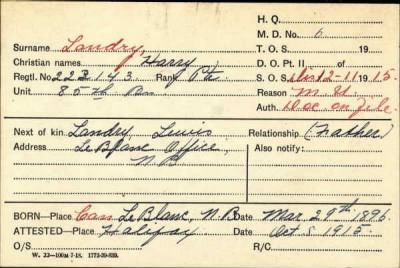 H. Q.
Surname Landry, M. D. No. 6
Christian names Harry T. O. S. 19
Regtl. No. 223143 Rank Pte. D. O. Pt. II of
Unit 85th Bn. S. O. S. Dis 12-11 1915.
Reason M. U.
Auth. Doc on File
Next of kin Landry, Lewis Relationship (Father)
Address LeBlanc Office, Also notify:
N.B.
BORN—Place Can LeBlanc, N.B. Date Mar. 29th 1896
ATTESTED—Place Halifax Date Oct 8 1915.
O/S R/C
W. 22—100M 7-18. 1772-39-839.